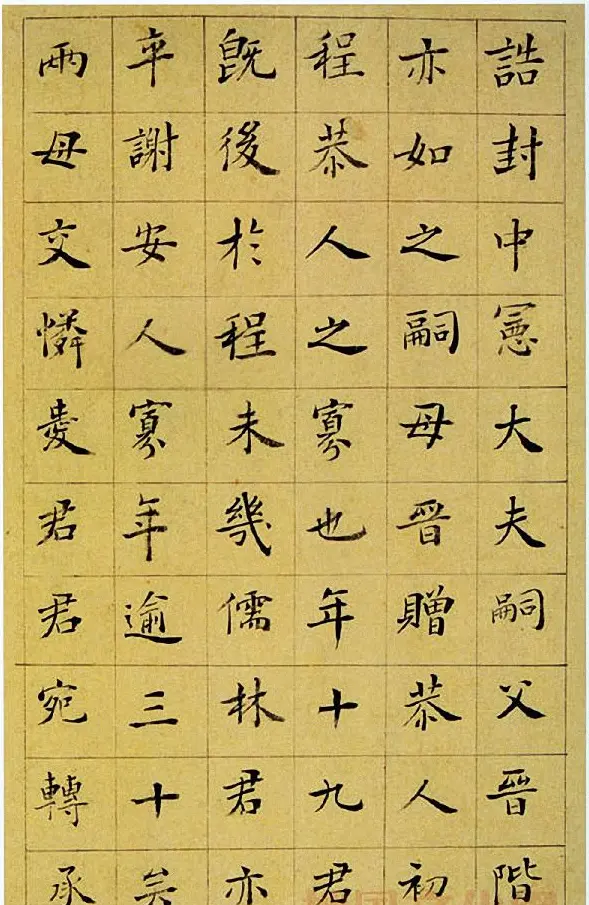 誥封中憲大夫嗣父晉階
亦如之嗣母晉贈恭人初
程恭人之寡也年十九君
既後於程未幾儒林君亦
卒謝安人寡年逾三十矣
兩母交憐愛君君宛轉承